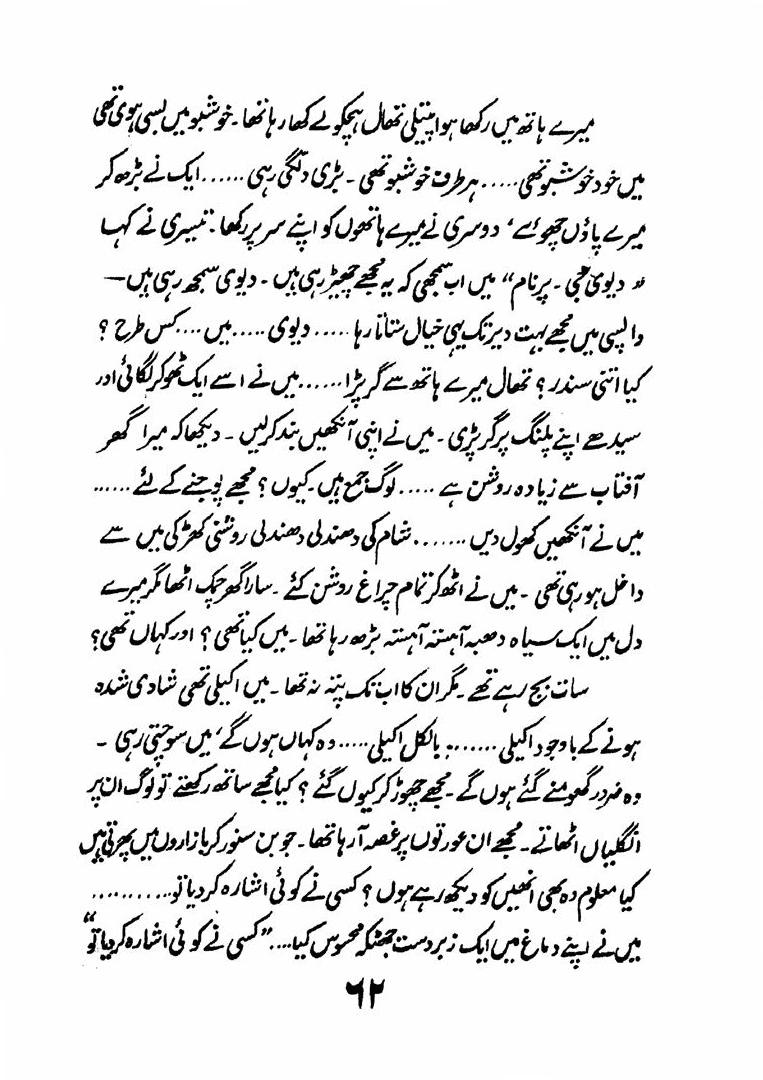 میرے ہاتھ میں رکھا ہوا پیتلی تھال ہچکولے کھا رہا تھا۔ خوشبو میں بسی ہوئی تھی
میں خود خوشبو تھی..... ہر طرف خوشبو تھی۔ بڑی دلگی رہی ...... ایک نے بڑھ کر
میرے پاؤں چھوئے، دوسری نے میرے ہاتھوں کو اپنے سر پر رکھا۔ تیسری نے کہا
"دیوی جی۔ پرنام" میں اب سمجھی کہ یہ مجھے چھیڑ رہی ہیں۔ دیوی سمجھ رہی ہیں—
واپسی میں مجھے بہت دیر تک یہی خیال ستاتا رہا ..... دیوی ..... میں .... کس طرح ؟
کیا اتنی سندر ؟ تھال میرے ہاتھ سے گر پڑا ...... میں نے اسے ایک ٹھوکر لگائی اور
سیدھے اپنے پلنگ پر گر پڑی۔ میں نے اپنی آنکھیں بند کرلیں۔ دیکھا کہ میرا گھر
آفتاب سے زیادہ روشن ہے ..... لوگ جمع ہیں۔ کیوں ؟ مجھے پوجنے کے لئے ......
میں نے آنکھیں کھول دیں ....... شام کی دھندلی دھندلی روشنی کھڑکی میں سے
داخل ہو رہی تھی۔ میں نے اٹھ کر تمام چراغ روشن کئے۔ سارا گھر چمک اٹھا مگر میرے
دل میں ایک سیاہ دھبہ آہستہ آہستہ بڑھ رہا تھا۔ میں کیا تھی ؟ اور کہاں تھی؟
سات بج رہے تھے۔ مگر ان کا اب تک پتہ نہ تھا۔ میں اکیلی تھی شادی شدہ
ہونے کے باوجود اکیلی ....... بالکل اکیلی ..... وہ کہاں ہوں گے، میں سوچتی رہی۔
وہ ضرور گھومنے گئے ہوں گے۔ مجھے چھوڑ کر کیوں گئے ؟ کیا مجھے ساتھ رکھتے تو لوگ ان پر
انگلیاں اٹھاتے۔ مجھے ان عورتوں پر غصہ آ رہا تھا۔ جو بن سنور کر بازاروں میں پھرتی ہیں
کیا معلوم وہ بھی انھیں کو دیکھ رہے ہوں ؟ کسی نے کوئی اشارہ کر دیا تو ..........
میں نے اپنے دماغ میں ایک زبردست جھٹکہ محسوس کیا.... "کسی نے کوئی اشارہ کر دیا تو"
۶۲